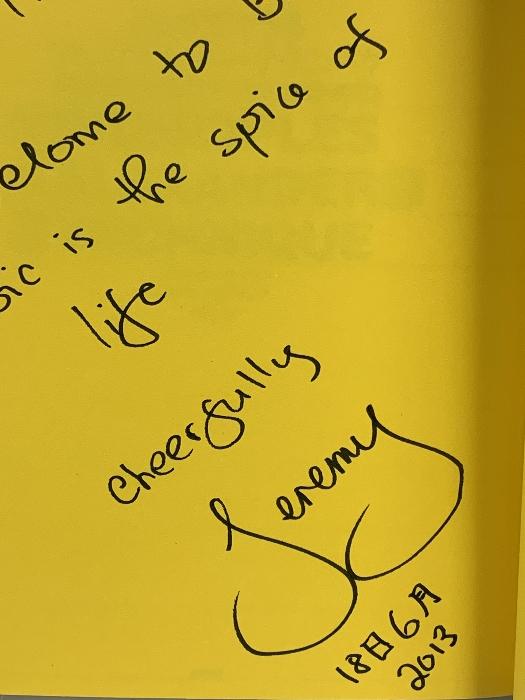 to
is the spice of
life
cheerfully
Jeremy
18日6月
2013